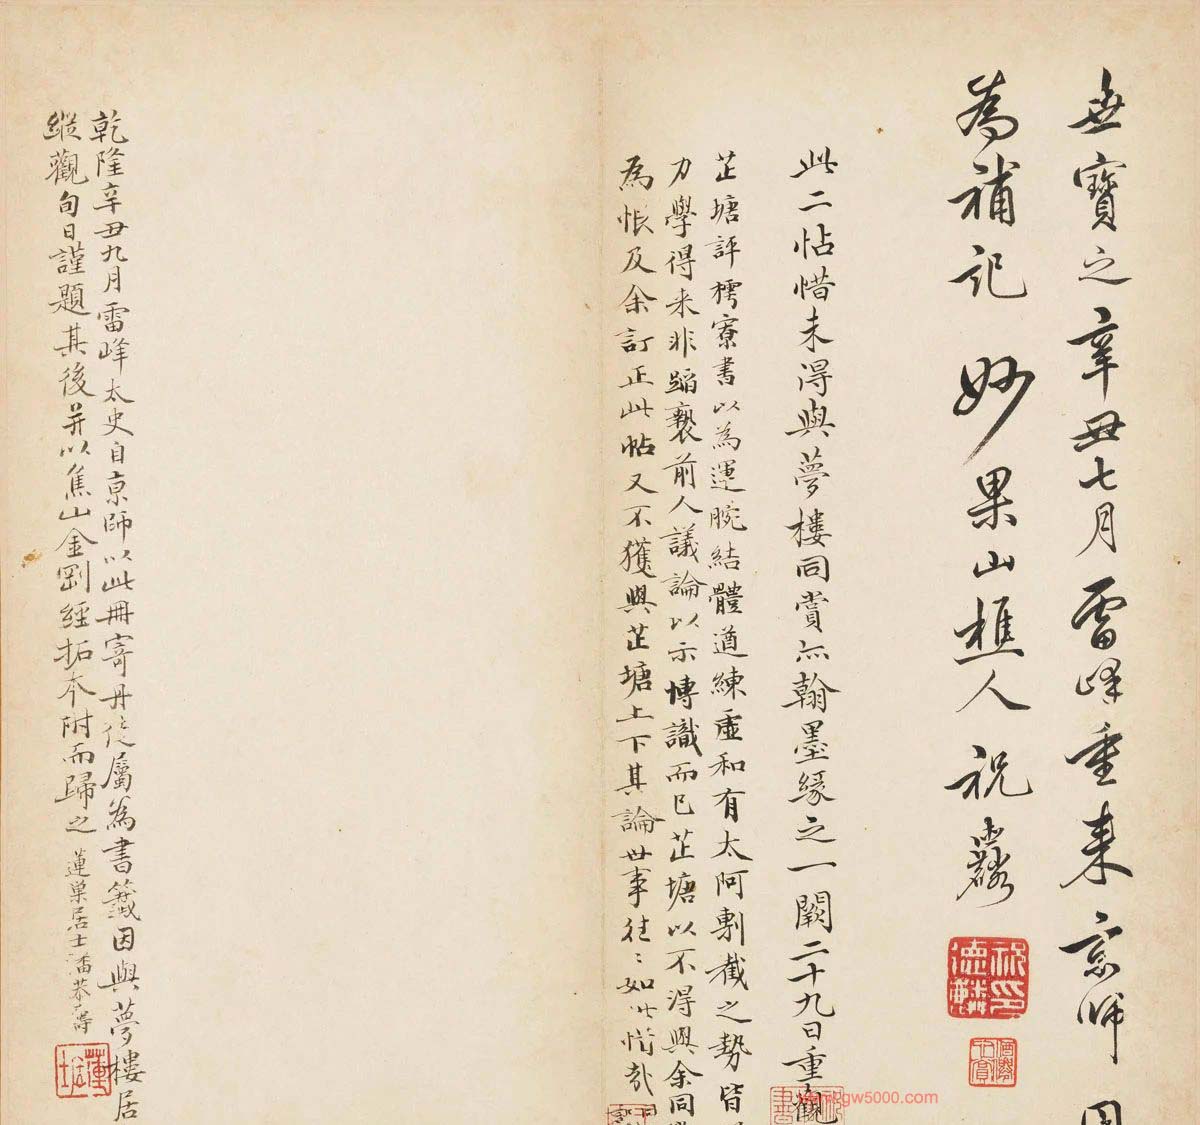 世寶之辛丑七月雷峰重来京師因
為補記 妙果山樵人祝
此二帖惜未得與夢樓同賞亦翰墨緣之一闕二十九日重觀
芷塘評樗寮書以為運腕結體遒練虛和有太阿剸截之勢皆
力學得来非蹈襲前人議論以示博識而已芷塘以不得與余同
為恨及余訂正此帖又不獲與芷塘上下其論世事往〻如此惜哉
乾隆辛丑九月雷峰太史自京師以此冊寄丹徒屬為書籤因與夢樓居
縱觀旬日謹題其後并以焦山金剛經拓本附而歸之 蓮巢居士潘恭壽
gw5000.com